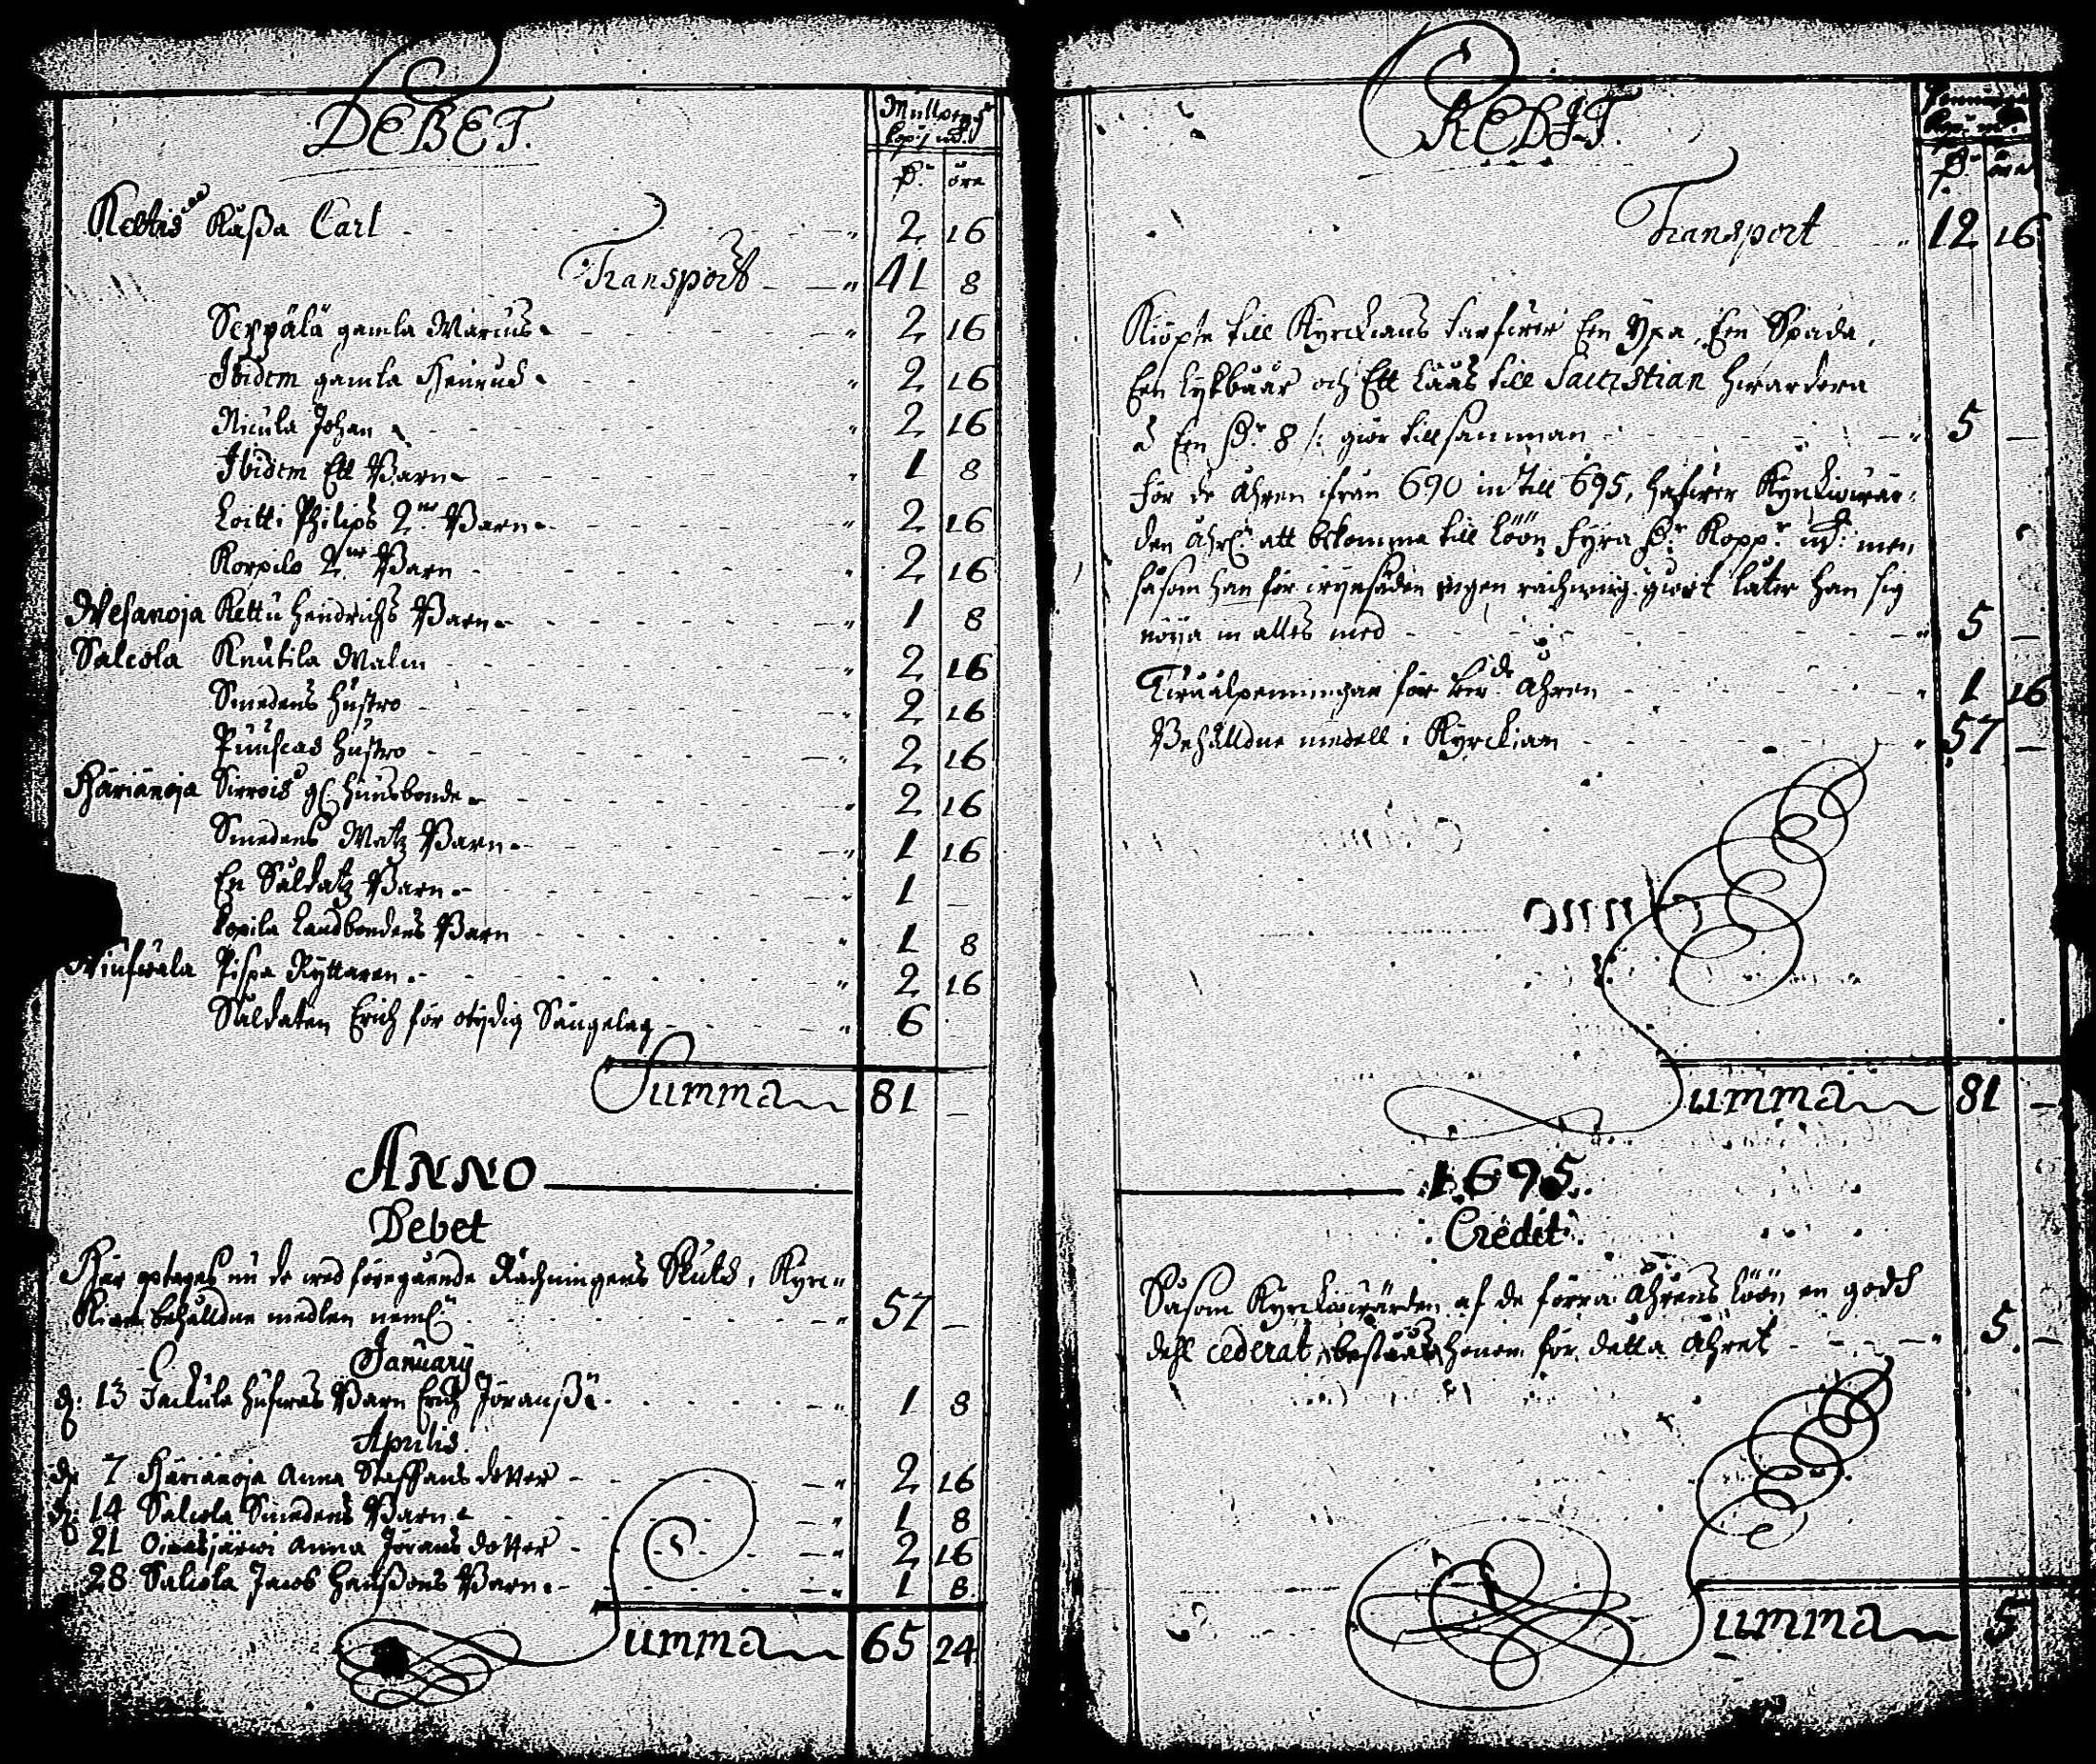 DEBET.
Kopp: mt.
Dr. öre
Rekois Kaßa Carl 2 16
Transport 41 8
Seppälä gamla Marcus 2 16
Ibidem gamla Heinrich 2 16
Nicula Johan 2 16
Ibidem Ett Barn 1 8
Loitti Philips 2ne Barn 2 16
Korpilo 2ne Barn 2 16
Wesanoja Kettu Heindrichs Barn 1 8
Salcola Knutila Malin 2 16
Smedens Hustro 2 16
Hustro 2 16
Härianoja Sirrois gl. huusbonde 2 16
Smedens Matz Barn 1 16
En Saldatz Barn 1 —
Landbondens Barn 1 8
Pispa Ryttaren 2 16
Saldaten Erich för otydig Sängelag 6
Summa 81 —
ANNO
Debet
Här optages nu de wed föregående Rächningens Sluth, Kyrc-
kian behåldne medlen neml. 57 —
January
d. 13 Barn Erich Jöranß 1 8
Aprilis
d. 7 Härianoja Anna Staffans dotter 2 16
d. 14 Salcola Smedens Barn 1 8
21 Oinasjärwi Anna Jörans dotter 2 16
28 Salcola Jacob Hanßons Barn 1 8
Summa 65 24
CREDIT.
Dr. öre
Transport 12 16
Kiöpte till Kyrckians tarfwer Een Ypa, Een Spada,
Een Lykbåår och Ett Låås till Sacristian hwardera
à Een Dr. 8 /: giör tillsamman 5 —
För de åhren ifrån 690 in till 695, hafwer Kyrckiowär-
den åhrl. att bekomma till löön fyra Dr. Kopp. mt. men
såsom han för ingen rächning giort låter han sig
nöija in alles med 5 —
Tiwålpenningar för åhren 1 16
Behåldne medell i Kyrckian 57 —
Summa 81 —
1695.
Credit.
Såsom Kyrckiowärden af de förra åhrens löön en godh
dehl cederat, bestååås honom för detta åhret 5 —
Summa 5